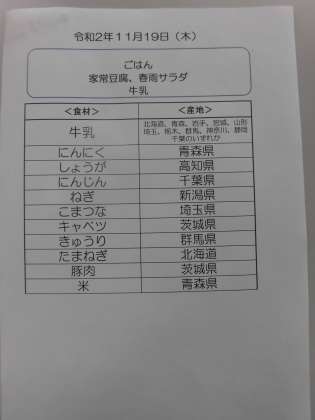 令和2年11月19日（木）
ごはん
家常豆腐、春雨サラダ
牛乳
＜食材＞ ＜産地＞
牛乳 北海道、青森、岩手、宮城、山形
埼玉、栃木、群馬、神奈川、静岡
千葉のいずれか
にんにく 青森県
しょうが 高知県
にんじん 千葉県
ねぎ 新潟県
こまつな 埼玉県
キャベツ 茨城県
きゅうり 群馬県
たまねぎ 北海道
豚肉 茨城県
米 青森県